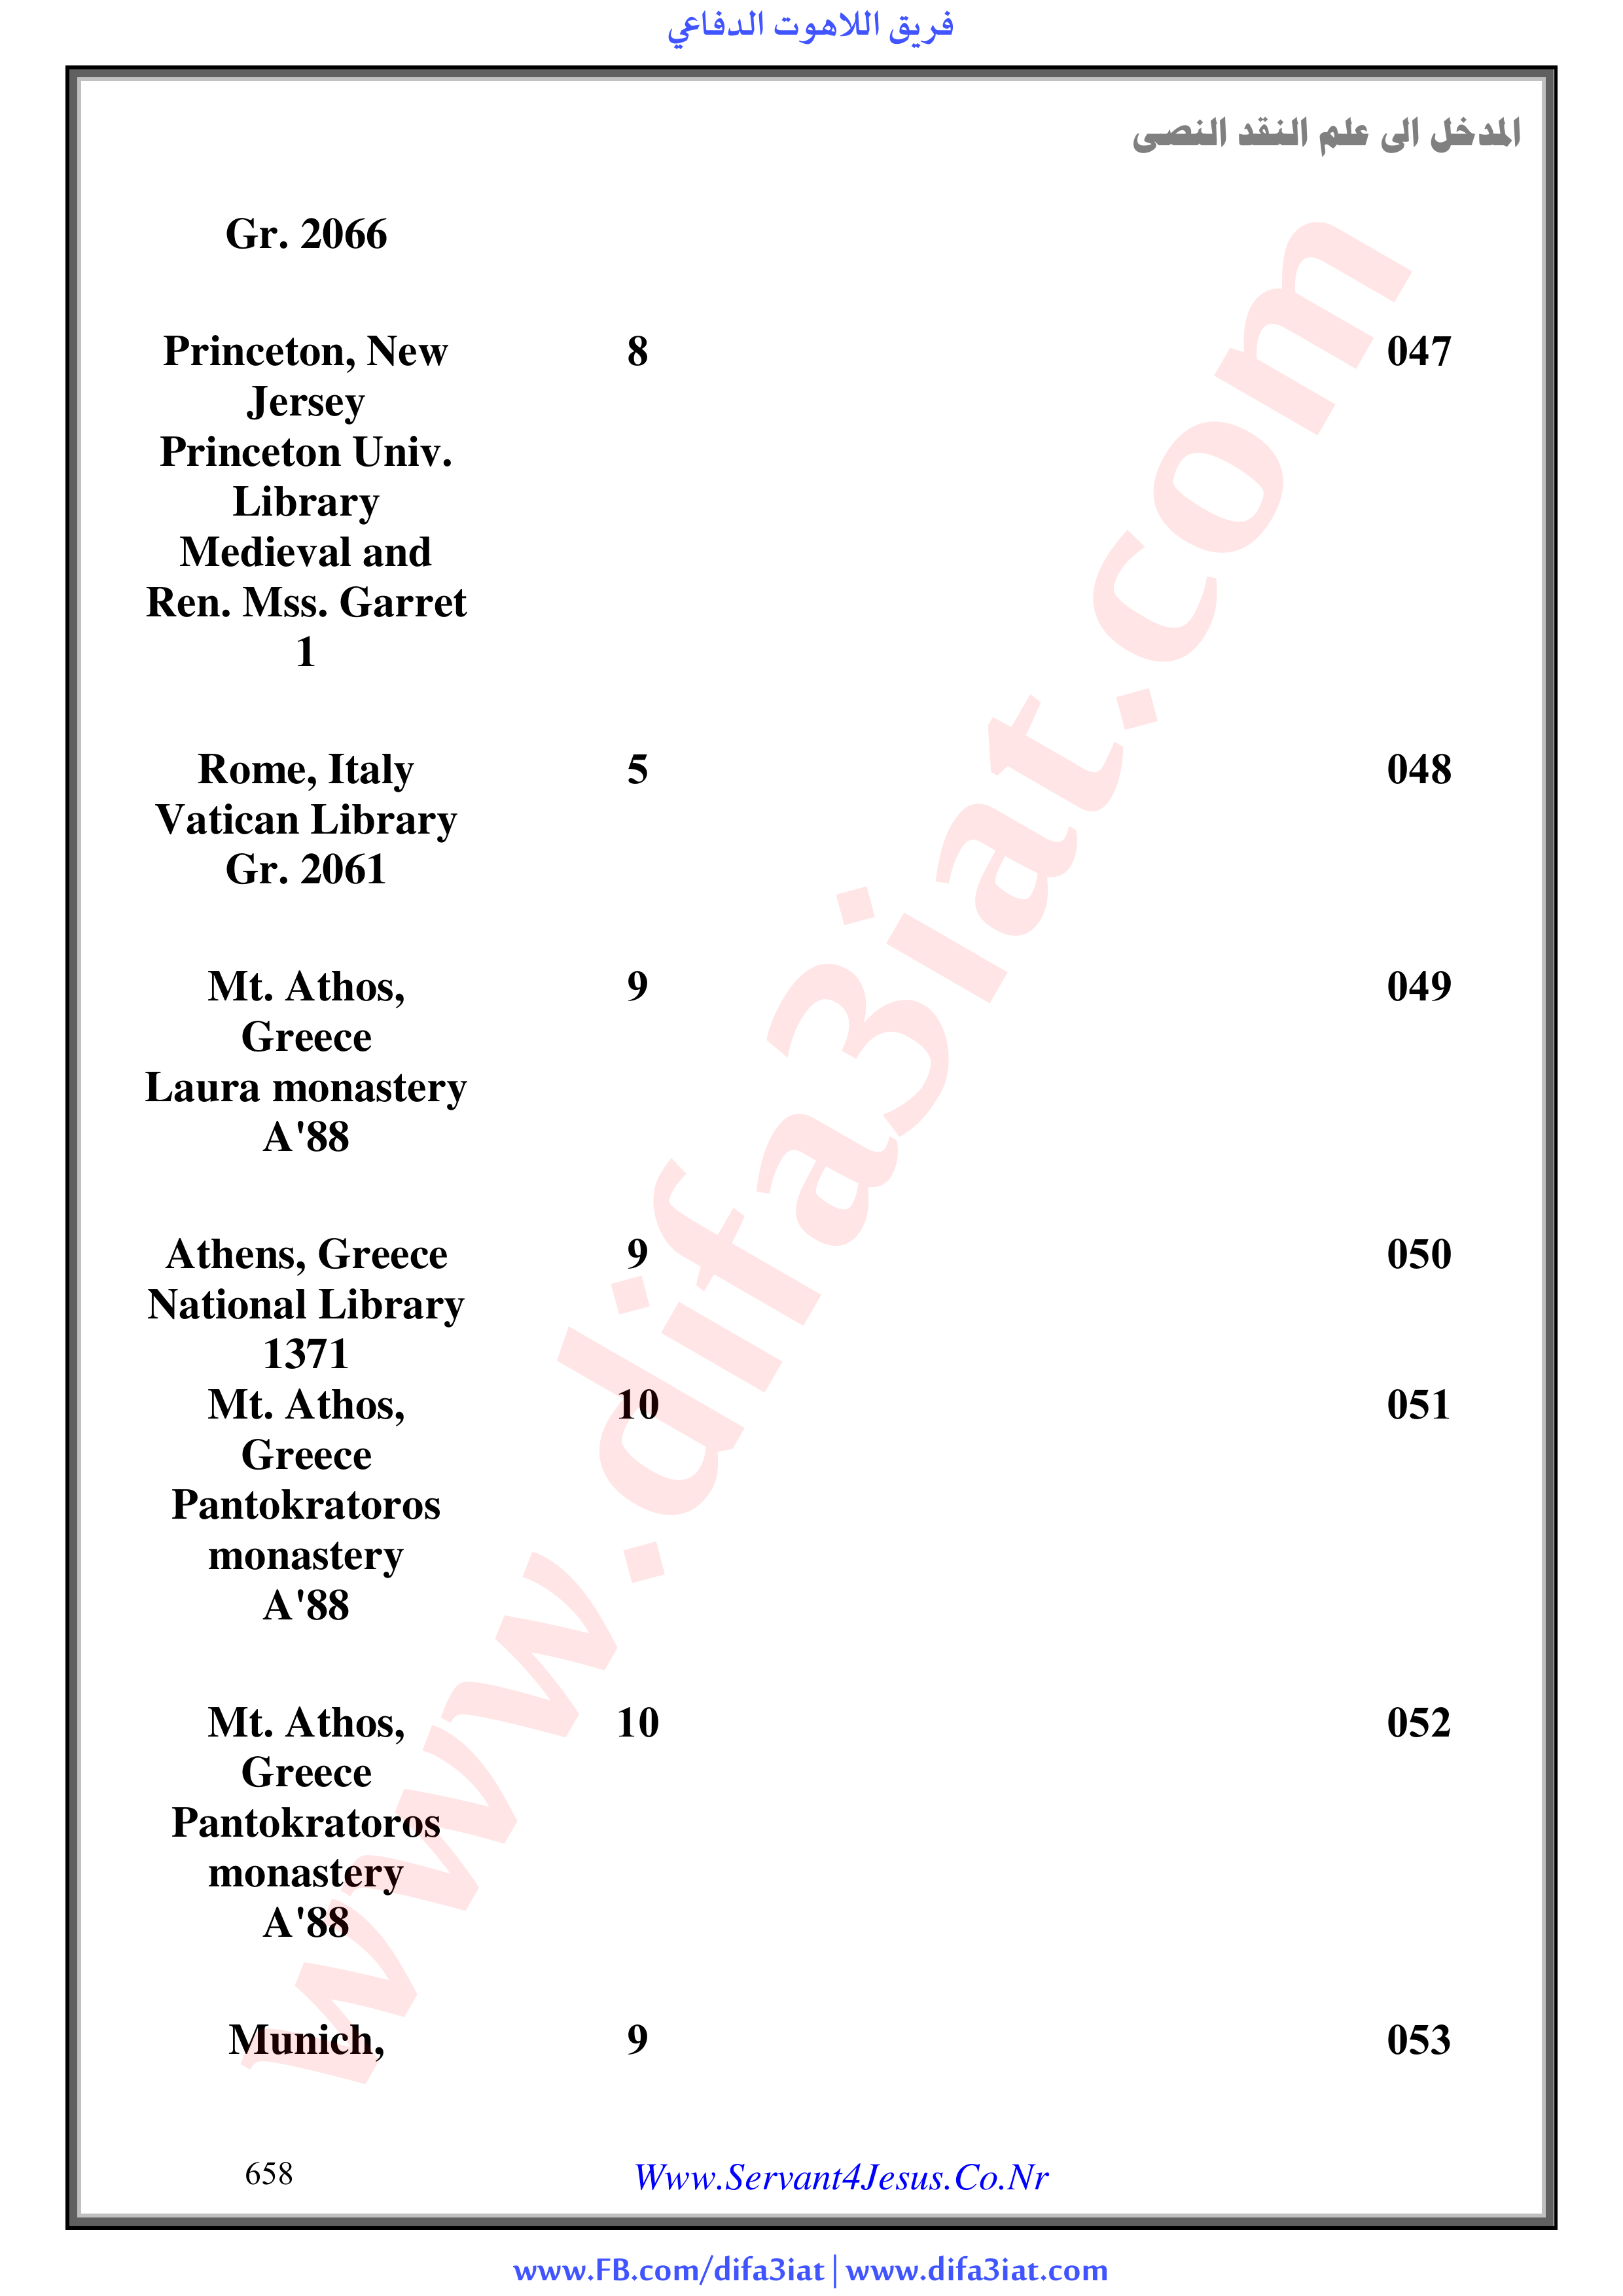 فريق اللاهوت الدفاعي
المدخل الى علم النقد النصى
Gr. 2066
047 8 Princeton, New
Jersey
Princeton Univ.
Library
Medieval and
Ren. Mss. Garret
1
048 5 Rome, Italy
Vatican Library
Gr. 2061
049 9 Mt. Athos,
Greece
Laura monastery
A'88
050 9 Athens, Greece
National Library
1371
051 10 Mt. Athos,
Greece
Pantokratoros
monastery
A'88
052 10 Mt. Athos,
Greece
Pantokratoros
monastery
A'88
053 9 Munich,
658 Www.Servant4Jesus.Co.Nr
www.FB.com/difa3iat | www.difa3iat.com
www.difa3iat.com